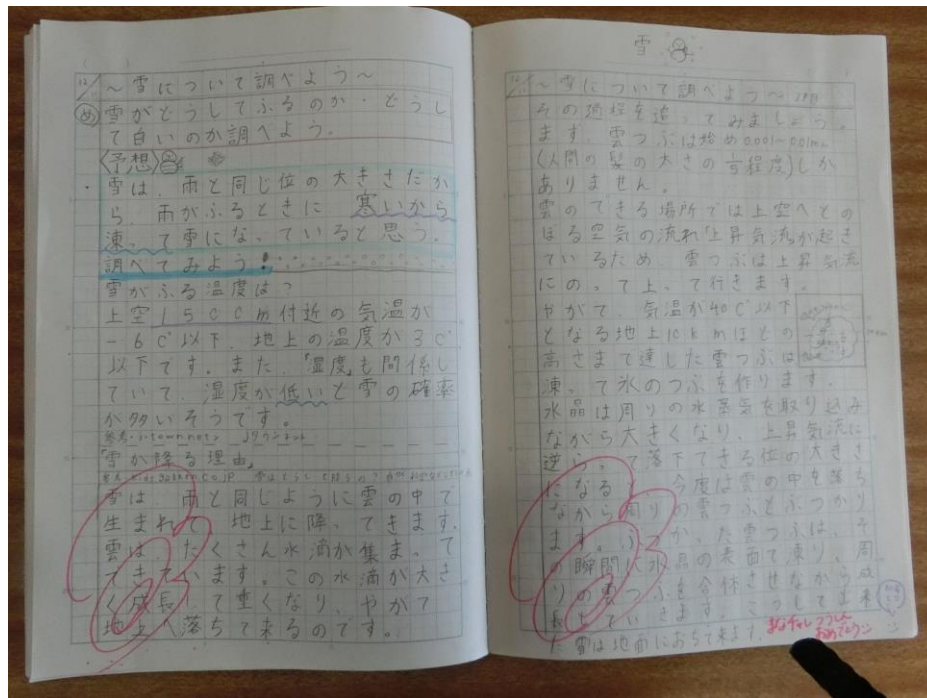 12/
～雪について調べよう～
め 雪がどうしてふるのか・どうし
て白いのか調べよう．
〈予想〉
・雪は、雨と同じ位の大きさだか
ら、雨がふるときに 寒いから
凍って雪になっていると思う。
調べてみよう！
雪がふる温度は？
上空1500m付近の気温が
－6℃以下、地上の温度が3℃
以下です。また「湿度」も関係し
ていて、湿度が低いと雪の確率
が多いそうです。
「雪が降る理由」
雪は、雨と同じように雲の中で
生まれて、地上に降ってきます．
雲は、たくさん水滴が集まって
できています。この水滴が大き
く成長して重くなり、やがて
地上へ落ちて来るのです。
雪
～雪について調べよう～
その過程を追ってみましょう。
ます、雲つぶは始め0.001～0.01mm
(人間の髪の太さの 程度)しか
ありません。
雲のできる場所では上空への
ぼる空気の流れ「上昇気流」が起き
ているため、雲つぶは上昇気流
にのって上って行きます。
やがて、気温が－40℃以下
となる地上10kmほどの
高さまで達した雲つぶは
凍って氷のつぶを作ります．
水晶は周りの水蒸気を取り込み
ながら大きくなり、上昇気流に
逆らって落下できる位の大きさ
になる 今度は雲の中を落ち
ながら周りの雲つぶとぶつかり
ます。ぶつかった雲つぶは、そ
の瞬間に氷晶の表面で凍り、周
りの雲つぶを合体させながら成
長していきます。こうして出来
た雪は地面におちて来ます。